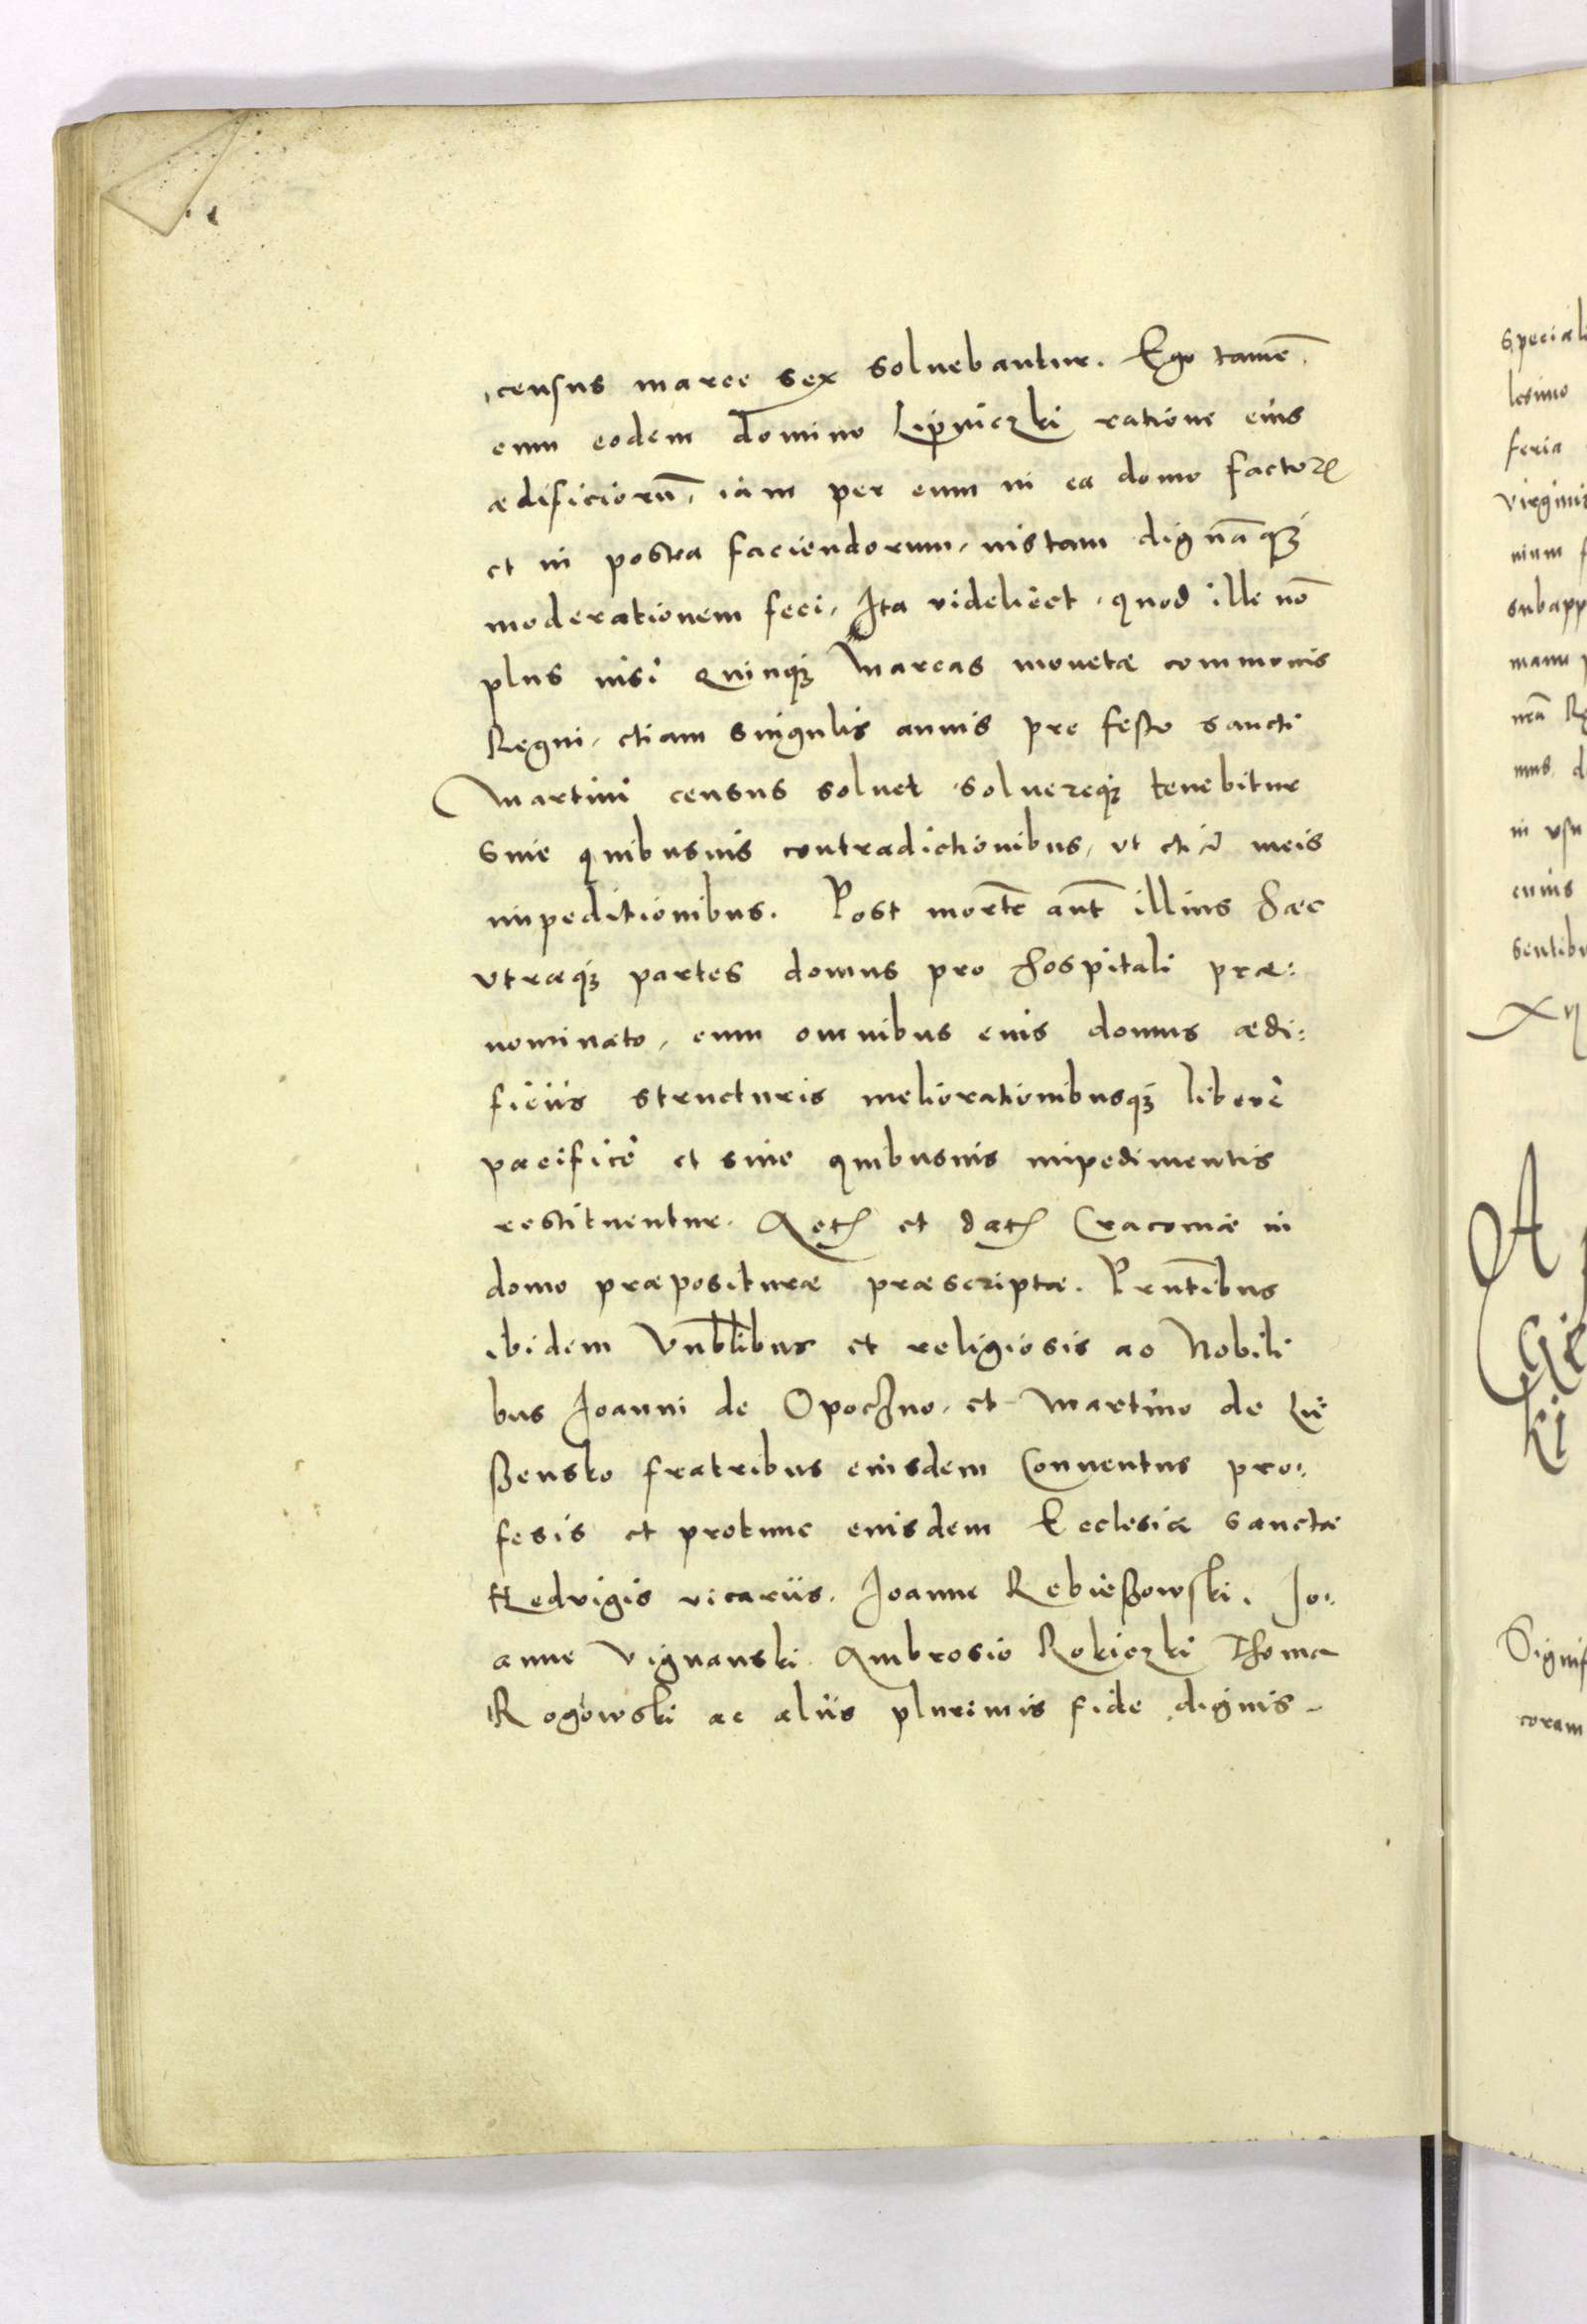 census marce sex soluebantur. Ego tamē
cum eodem domino Lipniczki ratione eius
ædificiorū, iam per eum in ea domo factoꝝ
et in postea faciendorum, iustam dignāqꝫ
moderationem feci, Ita videlicet, quod ille nō
plus nisi Quinqꝫ Marcas monetæ communis
Regni, etiam singulis annis pro festo sancti
Martini census soluet soluereqꝫ tenebitur
sine quibusuis contradictionibus, ut etiā meis
impeditionibus. Post mortē aūt illius hæc
vtræqꝫ partes domus pro hospitali præ:
nominato, cum omnibus eius domus ædi:
ficiis structuris meliorationibusqꝫ liberè
pacificè et sine quibusuis impedimentis
restituentur. Actꝭ et datꝭ Cracouiæ in
domo præposituræ præscriptæ. Prntībus
ibidem Vnblibus et religiosis ac Nobili
bus Joanni de Opoczno, et Martino de Lu
ßensko fratribus eiusdem Conuentus pro:
fesis et protunc eiusdem Ecclesiæ sanctæ
Hedvigis vicariis. Joanne Rebießowski. Jo:
anne Vignanski. Ambrosio Rokiczki Thoma
Rogowski ac aliis plurimis fide dignis.
speciali
lesimo
feria
virginis
nium
subapp
manu
mus, d
in vsu
cuius
sentibu
XII
A
Cie
ki
Signif
coram